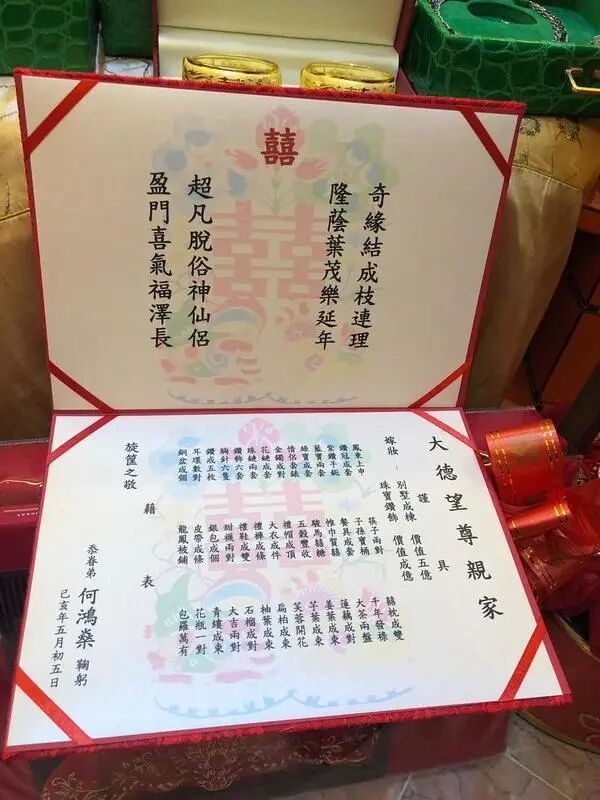 囍
奇緣結成枝連理
隆蔭葉茂樂延年
超凡脫俗神仙侶
盈門喜氣福澤長
大德望尊親家
謹具
嫁妝：別墅成棟 價值五億
珠寶鑽飾 價值成億
鳳東上申
鑽冠成套
紫鑽手鈪
藍寶兩套
綠寶成套
情侶套錶
金鐲成對
花鏈成套
珠鏈兩套
鑽飾六套
胸針六隻
鑽戒五枚
耳環數對
銅盆成個
筷子兩對
子孫寶桶
餐具成套
帷巾賀囍
駿馬囍糖
五穀豐收
禮帽成頂
大衣成件
禮褲成條
禮鞋成雙
襯兩對
銀包成個
皮帶成條
龍鳳被鋪
囍枕成雙
千年發祿
大茶兩盤
蓮藕成對
姜葉成束
芋葉成束
芙蓉開花
扁柏成束
柚葉成束
石榴成對
大吉兩對
青縷成束
花瓶一對
包羅萬有
藉表
旋筐之敬
忝眷弟 何鴻燊 鞠躬
己亥年五月初五日